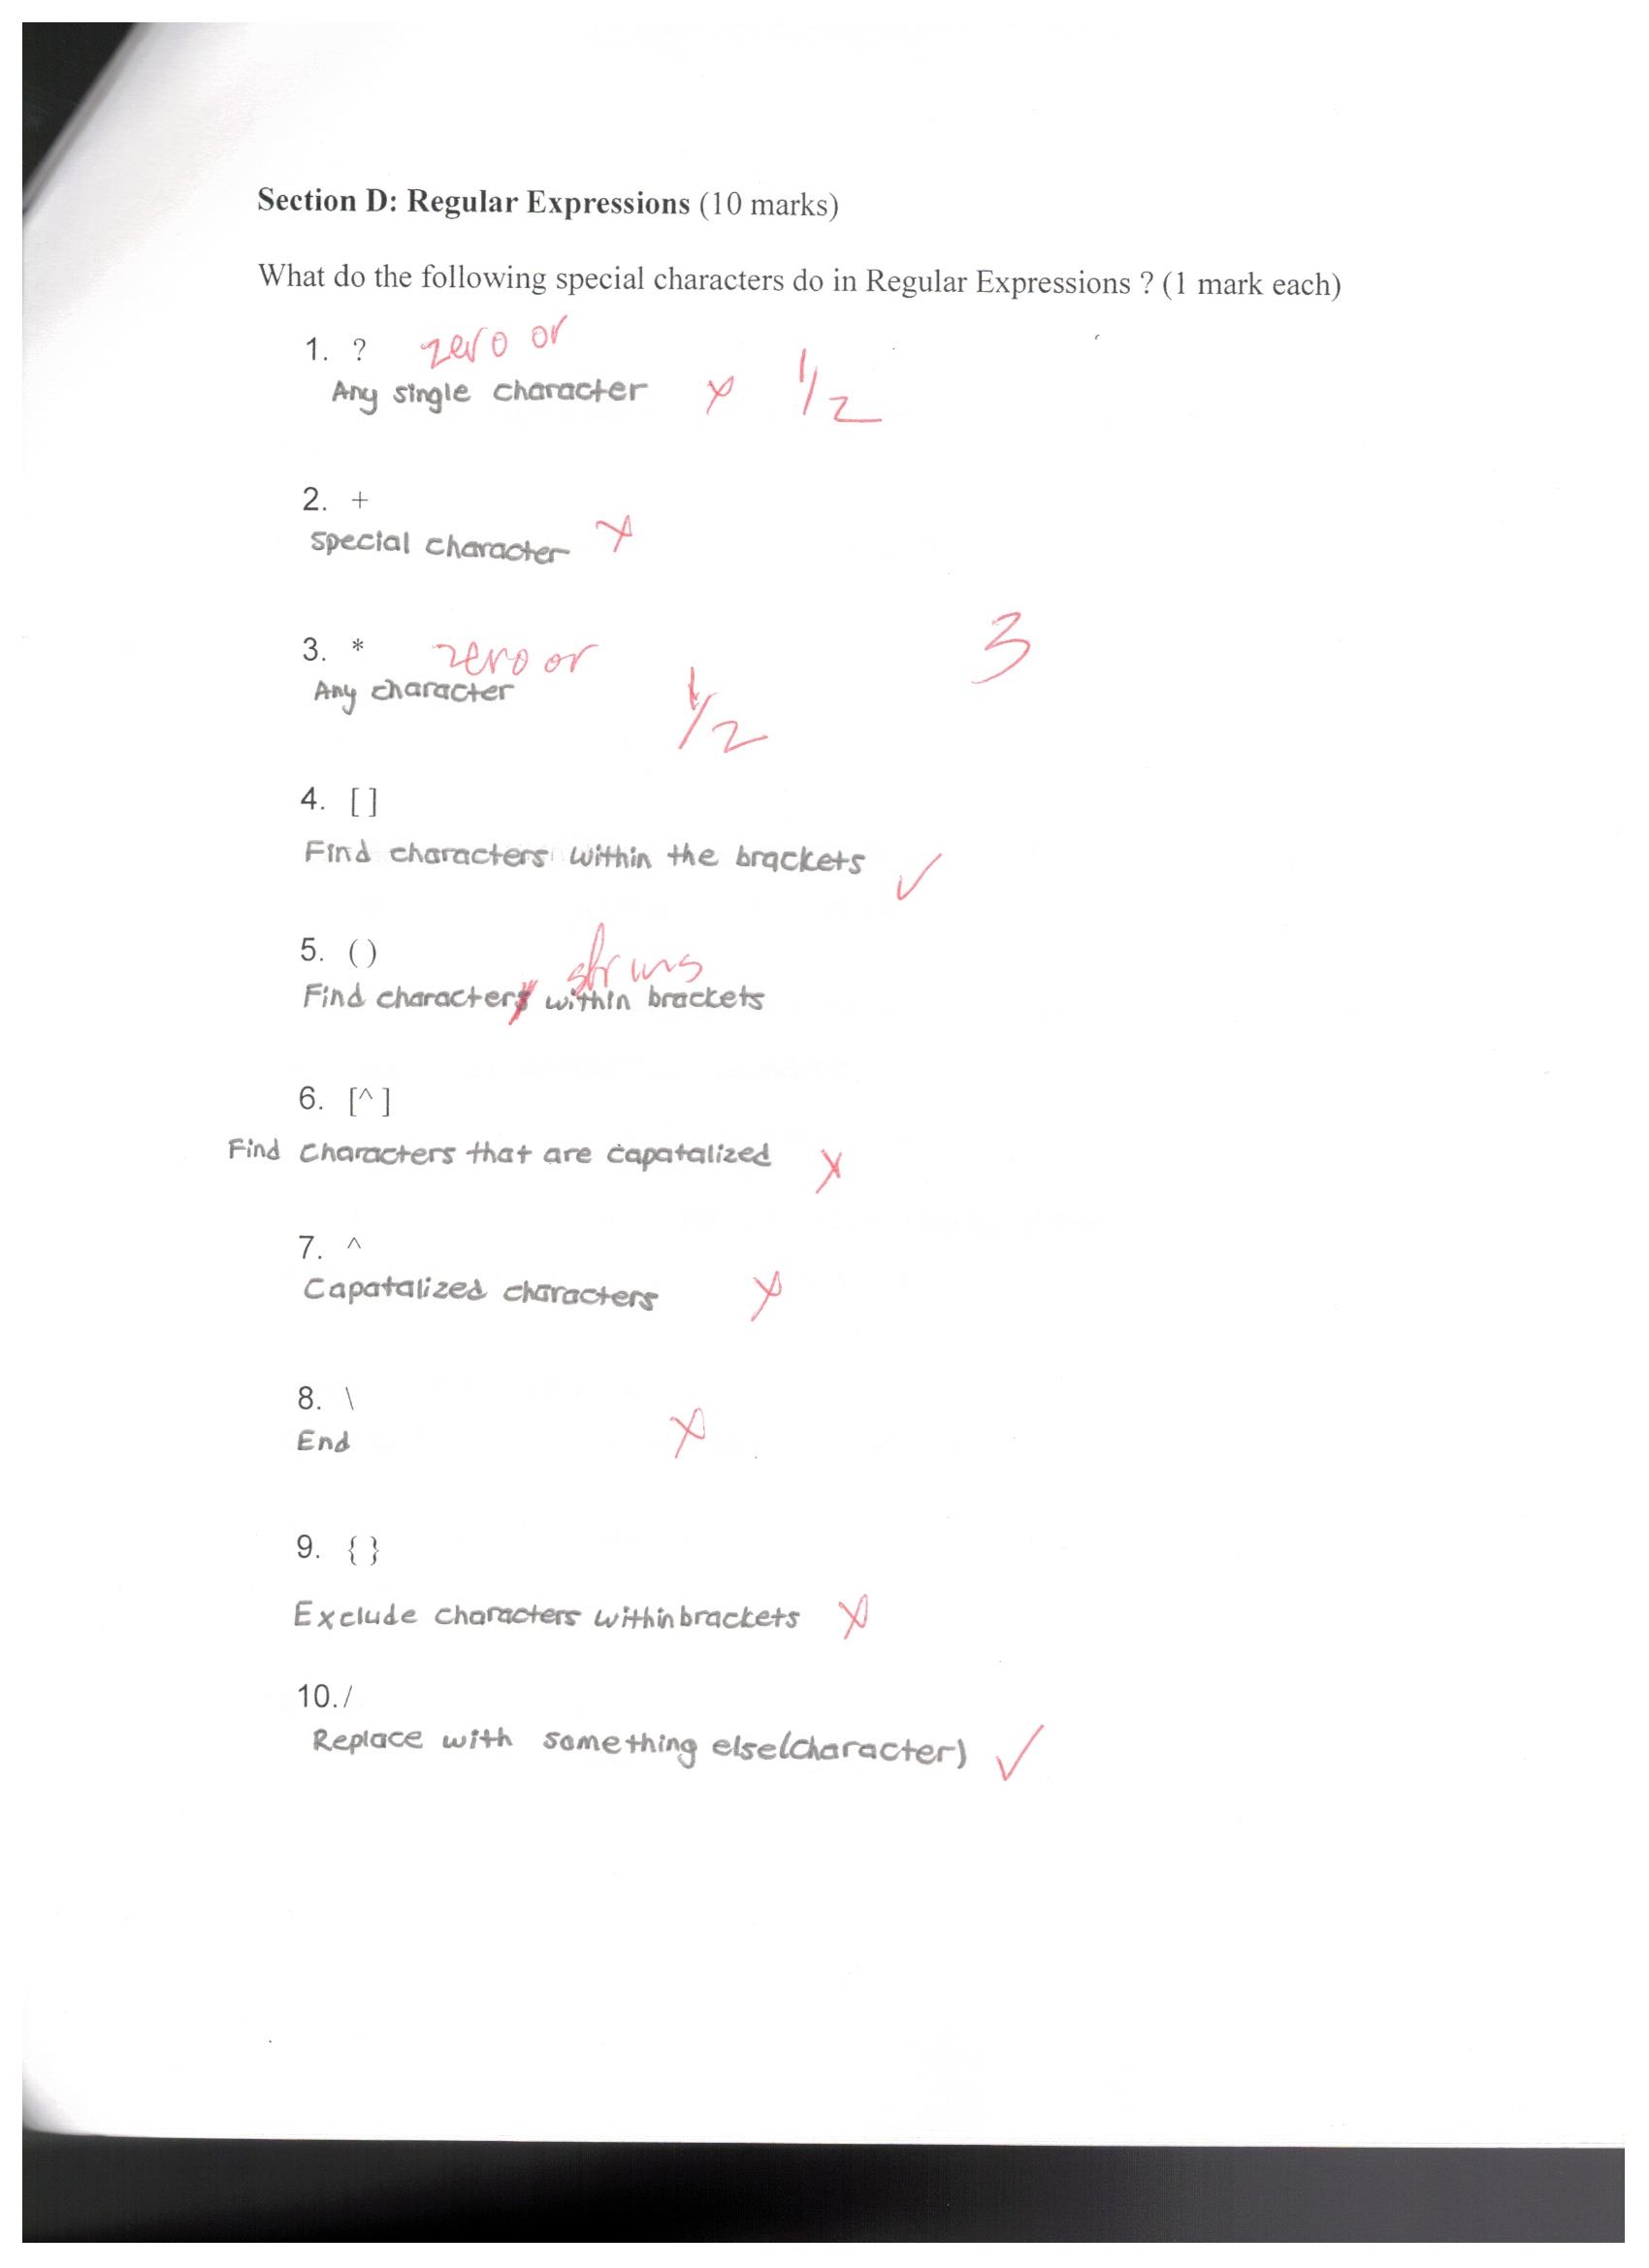 Section D: Regular Expressions (10 marks)
What do the following special characters do in Regular Expressions ? (1 mark each)
1. ? zero or
Any single character x 1/2
2. +
Special character x
3. * zero or 3
Any character 1/2
4. [ ]
Find characters within the brackets ✓
5. ( ) strings
Find characters within brackets
6. [^ ]
Find characters that are capatalized x
7. ^
Capatalized characters x
8. \
End x
9. { }
Exclude characters within brackets x
10./
Replace with something else(character) ✓